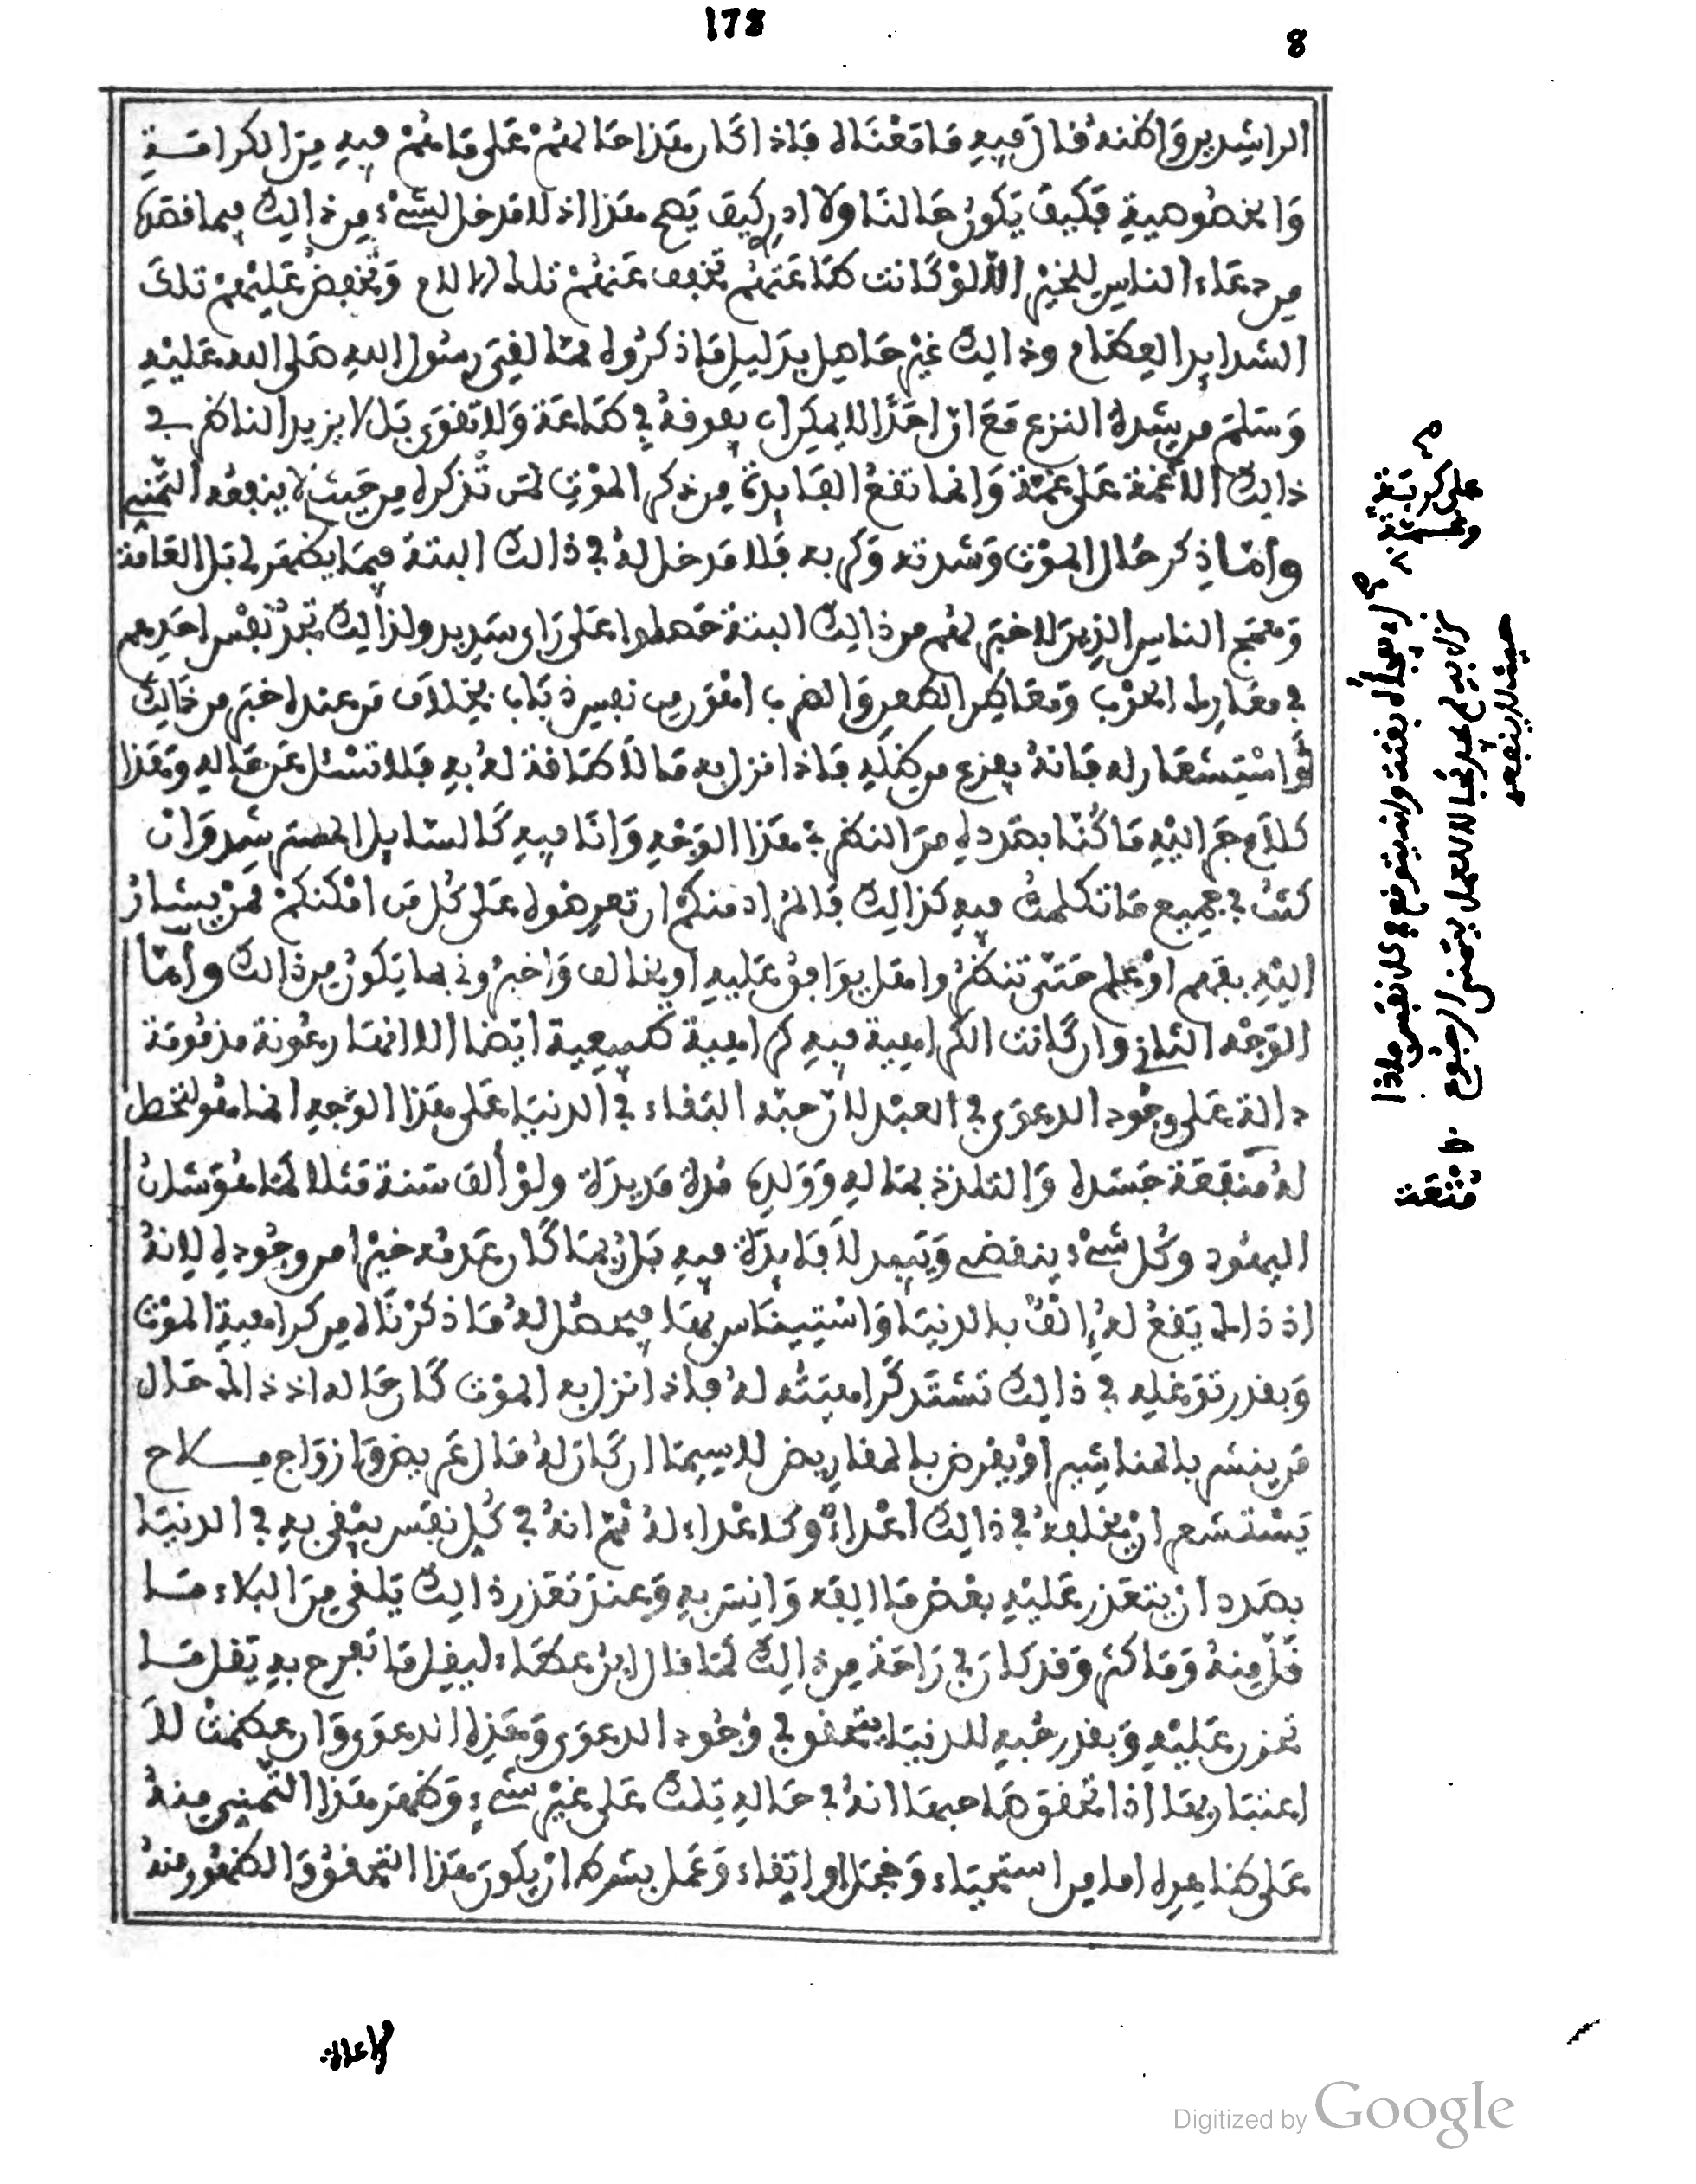 178
8
الراشدين وأظنه قال فيه ما معناه فإذا كان هذا حالهم على ما هم فيه من الكرامة
والخصوصية فكيف يكون حالنا ولا ادر كيف يصح هذا اذ لا مدخل لشيء من ذالك فيما قصده
من دعاء الناس للخير الا لو كانت طاعتهم تخفف عنهم تلك الالام وتخفض عليهم تلك
الشدايد العظام وذالك غير حاصل بدليل ما ذكروه مما لقي رسول الله صلى الله عليه
وسلم من شدة النزع مع ان احدا لا يمكن ان يفوقه في طاعة ولا تقوى بل لا يزيد الناظر في
ذالك الا غمة على غمة وانما تقع الفايدة من ذكر الموت لمن تذكره من حيث لا ينفعه التمني
واما ذكر حال الموت وشدته وكربه فلا مدخل له في ذالك البتة فيما يظهر لي بل العامة
وهمج الناس الذين لا خبر لهم من ذالك البتة حصلوا على راي سديد ولذالك تجد نفس احدهم
في معارك الحرب ومعاطن الطعن والضرب اهون من نفس ذباب بخلاف من عنده خبر من ذالك
او استشعار له فانه يفزع من ظله فاذا نزل به ما لا طاقة له به فلا تسئل عن حاله وهذا
كلام جر اليه ما كنا بصدده من النظر في هذا الوجه وانا فيه كالسايل المسترشد وان
كنت في جميع ما تكلمت فيه كذالك فالمراد منكم ان تعرضوه على كل من امكنكم ممن يشار
اليه بفهم او علم حتى تنظروا هل يوافق عليه او يخالف واخبروني بما يكون من ذالك واما
الوجه الثاني وان كانت الكراهية فيه كراهية طبيعية ايضا الا انها رعونة مذمومة
دالة على وجود الدعوى في العبد لان حبه البقاء في الدنيا على هذا الوجه انما هو لتحصل
له منفعة جسده والتلذذ بماله وولده مدة مديدة ولو ألف سنة مثلا كما هو شان
اليهود وكل شيء ينقضي ويبيد لا فايدة فيه بل ربما كان عدمه خيرا من وجوده لانه
اذ ذاك لم يقع له إلف بالدنيا واستيناس بها فيحصل له ما ذكرناه من كراهية الموت
وبقدر توغله في ذالك تشتد كراهيته له فاذا نزل به الموت كان حاله اذ ذاك حال
من ينشر بالمناشير او يقرض بالمقاريض لا سيما ان كان له مال عريض وازواج ملاح
يستشعر ان يخلفه في ذالك اعداءً وكل اعداء له ثم انه في كل نفس يبقى به في الدنيا
بصدد ان يتعذر عليه بعض ما الفه وانس به وعند تعذر ذالك يلقى من البلاء ما
قل منه وما كثر وقد كان في راحة من ذالك كما قال ابن عطاء ليقل ما تفرح به يقل ما
تحزن عليه وبقدر حبه للدنيا يتحقق في وجود الدعوى وهذه الدعوى وان عظمت لا
اعتبار بها اذا تحقق صاحبها انه في حاله تلك على غير شيء وظهر هذا التمييز منه
على ظاهره اما من استحياء وخجل او اتقاء وعمل بشرط ان يكون هذا التحقق والظهور منه
نزل به لم يجد مجالا للعمل يتمنى الرجوع
حيث لا ينفعه
منفعة
واعلان